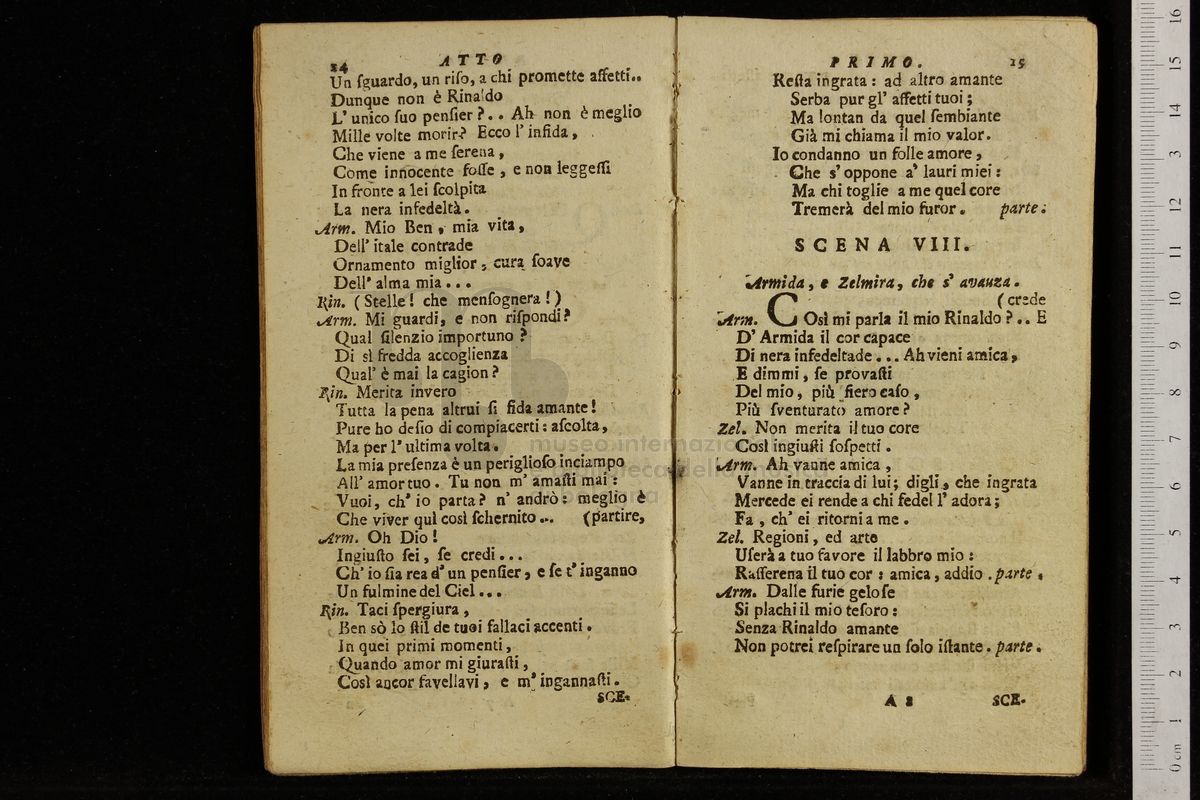 24 ATTO
Un ſguardo, un riſo, a chi promette affetti..
Dunque non è Rinaldo
L' unico ſuo penſier?.. Ah non è meglio
Mille volte morir? Ecco l' infida,
Che viene a me ſerena,
Come innocente foſſe, e non leggeſſi
In fronte a lei ſcolpita
La nera infedeltà.
Arm. Mio Ben, mia vita,
Dell' itale contrade
Ornamento miglior, cura ſoave
Dell' alma mia...
Rin. (Stelle! che menſognera!)
Arm. Mi guardi, e non riſpondi?
Qual ſilenzio importuno?
Di sì fredda accoglienza
Qual' è mai la cagion?
Rin. Merita invero
Tutta la pena altrui ſi fida amante!
Pure ho deſio di compiacerti: aſcolta,
Ma per l' ultima volta.
La mia preſenza è un periglioſo inciampo
All' amor tuo. Tu non m' amaſti mai:
Vuoi, ch' io parta? n' andrò: meglio è
Che viver quì così ſchernito... (partire,
Arm. Oh Dio!
Ingiuſto ſei, ſe credi...
Ch' io ſia rea d' un penſier, e ſe t' inganno
Un fulmine del Ciel...
Rin. Taci ſpergiura,
Ben sò lo ſtil de tuoi fallaci accenti.
In quei primi momenti,
Quando amor mi giuraſti,
Così ancor favellavi, e m' ingannaſti.
SCE-
PRIMO. 25
Reſta ingrata: ad altro amante
Serba pur gl' affetti tuoi;
Ma lontan da quel ſembiante
Già mi chiama il mio valor.
Io condanno un folle amore,
Che s' oppone a' lauri miei:
Ma chi toglie a me quel core
Tremerà del mio furor. parte.
SCENA VIII.
Armida, e Zelmira, che s' avanza.
(crede
Arm. COsì mi parla il mio Rinaldo?.. E
D' Armida il cor capace
Di nera infedeltade... Ah vieni amica,
E dimmi, ſe provaſti
Del mio, più fiero caſo,
Più ſventurato amore?
Zel. Non merita il tuo core
Così ingiuſti ſoſpetti.
Arm. Ah vanne amica,
Vanne in traccia di lui; digli, che ingrata
Mercede ei rende a chi fedel l' adora;
Fa, ch' ei ritorni a me.
Zel. Regioni, ed arte
Uſerà a tuo favore il labbro mio:
Rafferena il tuo cor: amica, addio. parte.
Arm. Dalle furie geloſe
Si plachi il mio teſoro:
Senza Rinaldo amante
Non potrei reſpirare un ſolo iſtante. parte.
A 8 SCE-
museo internazionale
e biblioteca della musica
0 cm 1 2 3 4 5 6 7 8 9 10 11 12 13 14 15 16